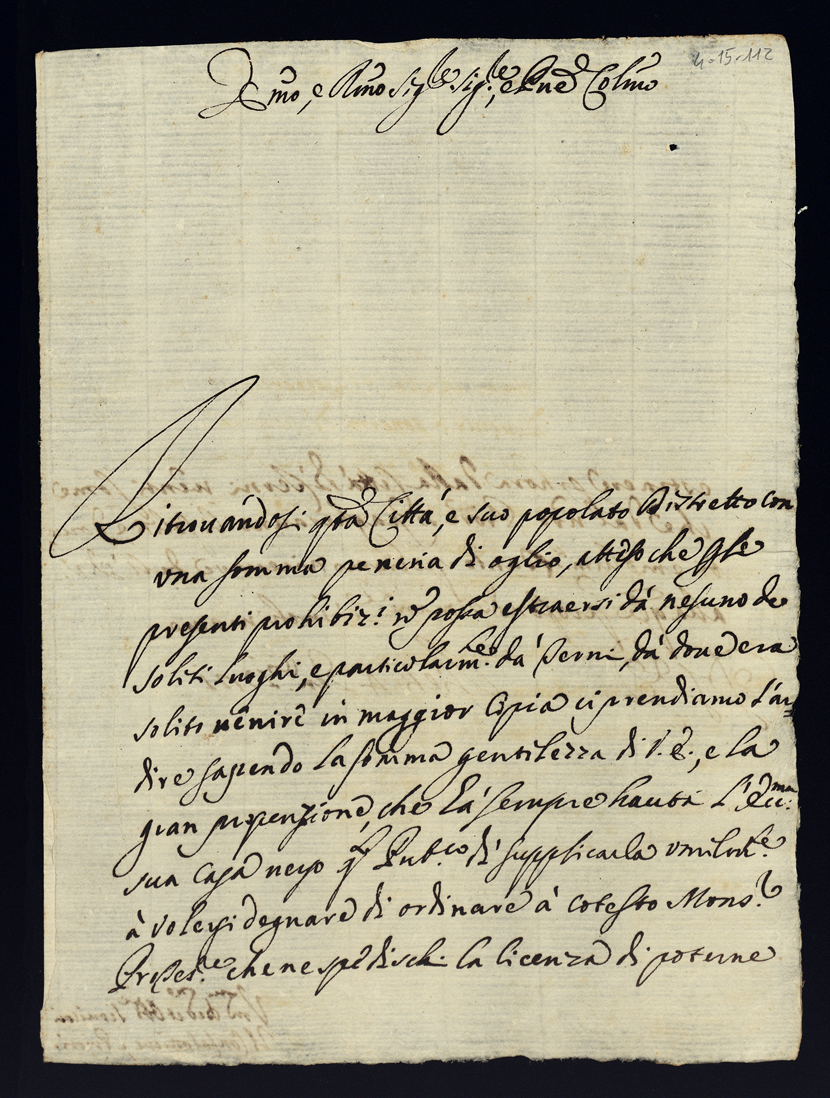 4-15-112
Emo, e Rmo Sig.re Sig.re, e Pnẽ Colmo
Ritrouándosi q̃ta Città, e suo popolato Distretto con
vna somma penuria di oglio, atteso che p le
presenti prohibiz.i nõ possa estraersi dá nesuno de
soliti luoghi, e particolarm.te dá Terni, dá doue era
solito uenire in maggior Copia ci prendiamo l'ar=
dire sapendo la somma gentilezza di V. E., e la
gran propenzione, che hà sempre hauta l'Ecc.ma
sua Casa uerso q̃to Pub.co di supplicarla vmilm.te
à volersi degnare di ordinare à cotesto Mons.r
Presid.te che ne spedischi la licenza di poterne